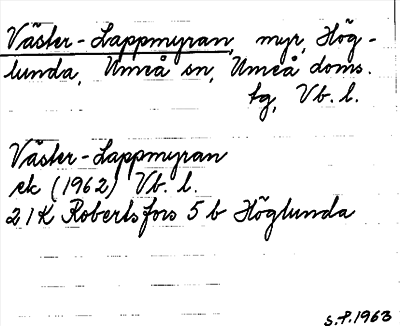 Väster-Lappmyran, myr, Hög-
lunda, Umeå sn, Umeå doms.
tg, Vb. l.
Väster-Lappmyran
ek (1962) Vb. l.
21K Robertsfors 5 b Höglunda
S.P. 1963